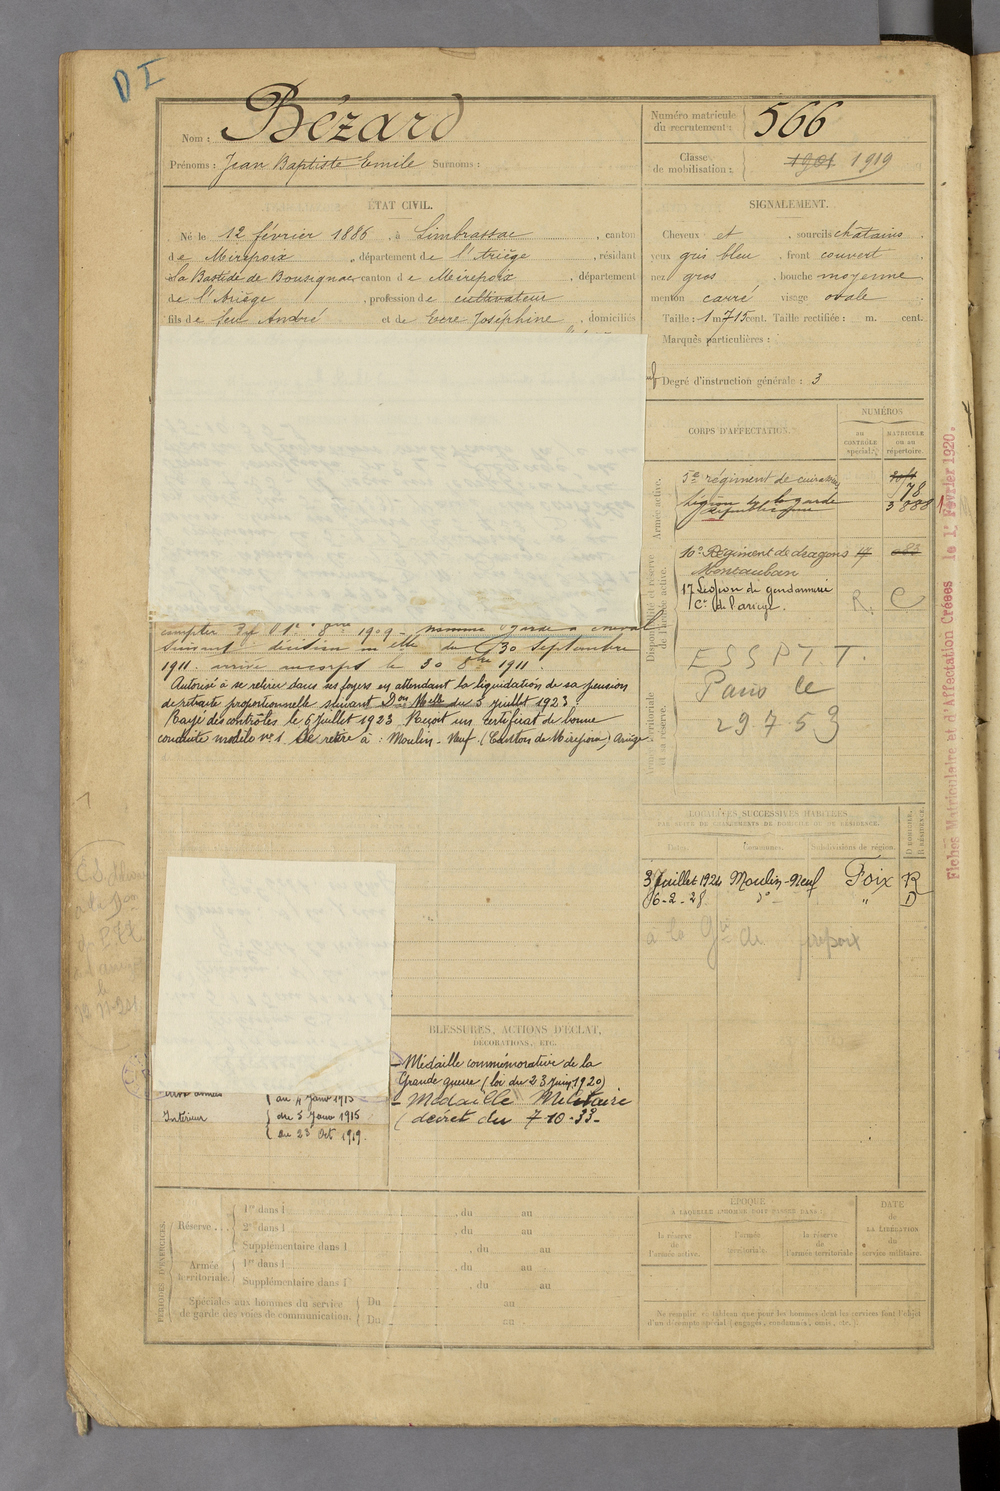 D I
Nom : Bézard
Prénoms : Jean Baptiste Emile Surnoms :
Numéro matricule
du recrutement : 566
Classe
de mobilisation : 1901 1919
ÉTAT CIVIL.
Né le 12 février 1886, à Limbrassac, canton
de Mirepoix, département de l'Ariège, résidant
La Bastide de Bousignac canton de Mirepoix, département
de l'Ariège, profession de cultivateur
fils de feu André et de Eere Joséphine, domiciliés
SIGNALEMENT.
Cheveux et sourcils châtains
yeux gris bleu, front couvert
nez gros, bouche moyenne
menton carré visage ovale
Taille : 1 m 715 cent. Taille rectifiée : m. cent.
Marques particulières :
Degré d'instruction générale : 3
CORPS D'AFFECTATION.
NUMÉROS
au
CONTRÔLE
spécial.
MATRICULE
ou au
répertoire.
Armée active.
5e régiment de cuirassiers
Légion de la garde
républicaine
78
3888
Disponibilité et réserve
de l'armée active.
10e Régiment de dragons 17
Montauban
17 Légion de gendarmerie
Cie de l'ariège. R. C
Armée territoriale
et sa réserve.
ESSPTT.
Paris le
29.7.53
compter du 1er 8bre 1909 - nommé garde à cheval
suivant décision mielle du 30 Septembre
1911. arrivé au corps le 30 8bre 1911.
Autorisé à se retirer dans ses foyers en attendant la liquidation de sa pension
de retraite proportionnelle suivant Don Mielle du 3 juillet 1923.
Rayé des contrôles le 6 Juillet 1923 Reçoit un certificat de bonne
conduite modèle n° 1 Se retire à : Moulin-Neuf (Canton de Mirepoix) Ariège
LOCALITÉS SUCCESSIVES HABITÉES
PAR SUITE DE CHANGEMENTS DE DOMICILE OU DE RÉSIDENCE.
Dates. Communes. Subdivisions de région. D DOMICILE. R RÉSIDENCE.
3 Juillet 1924 Moulin-Neuf Foix R
6-2-28 do " D
à la Gie de
BLESSURES, ACTIONS D'ÉCLAT,
DÉCORATIONS, ETC.
- Médaille commémorative de la
Grande guerre (loi du 23 Juin 1920)
- Médaille Militaire
(décret du 7-10-33-
au 4 Janv 1915
Intérieur du 5 Janv 1915
au 23 Oct 1919.
PÉRIODES D'EXERCICES.
Réserve...
1re dans l , du au
2e dans l , du au
Supplémentaire dans l , du au
Armée
territoriale
1re dans l , du au
Supplémentaire dans l , du au
Spéciales aux hommes du service
de garde des voies de communication.
Du au
Du au
ÉPOQUE
À LAQUELLE L'HOMME DOIT PASSER DANS :
la réserve
de
l'armée active.
l'armée
territoriale.
la réserve
de
l'armée territoriale
DATE
de
LA LIBÉRATION
du
service militaire.
Ne remplir ce tableau que pour les hommes dont les services font l'objet
d'un décompte spécial (engagés, condamnés, omis, etc.).
Fiches Matriculaire et d'Affectation Créées le 1er Février 1920.